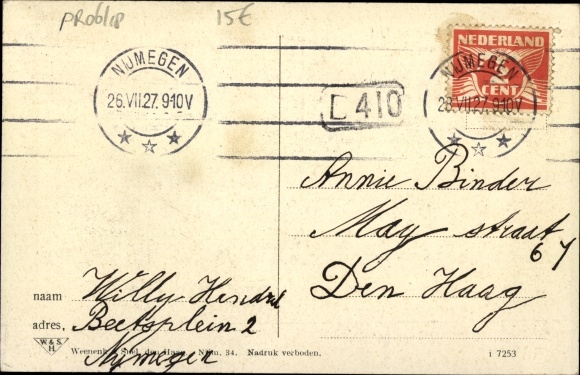 PR06/18 15€
NEDERLAND
CENT
NIJMEGEN
26.VII.27. 9-10V
NIJMEGEN
26.VII.27. 9-10V
D 410
Annie Binder
May straat
67
Den Haag
naam Willy Hendri
adres, Beetsplein 2
Nijmegen
W. & S.
H.
Weenenk & Snel, den Haag. Nijm. 34. Nadruk verboden.
i 7253